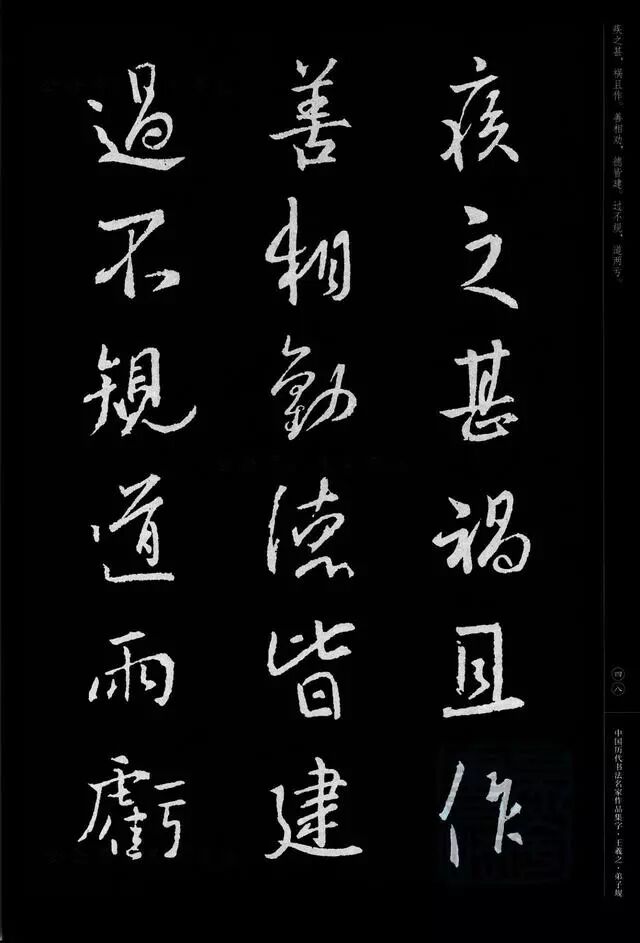 疾之甚，祸且作。善相劝，德皆建。过不规，道两亏。
四八
中国历代书法名家作品集字·王羲之·弟子规
疾之甚禍且作
善相勸德皆建
過不規道兩虧